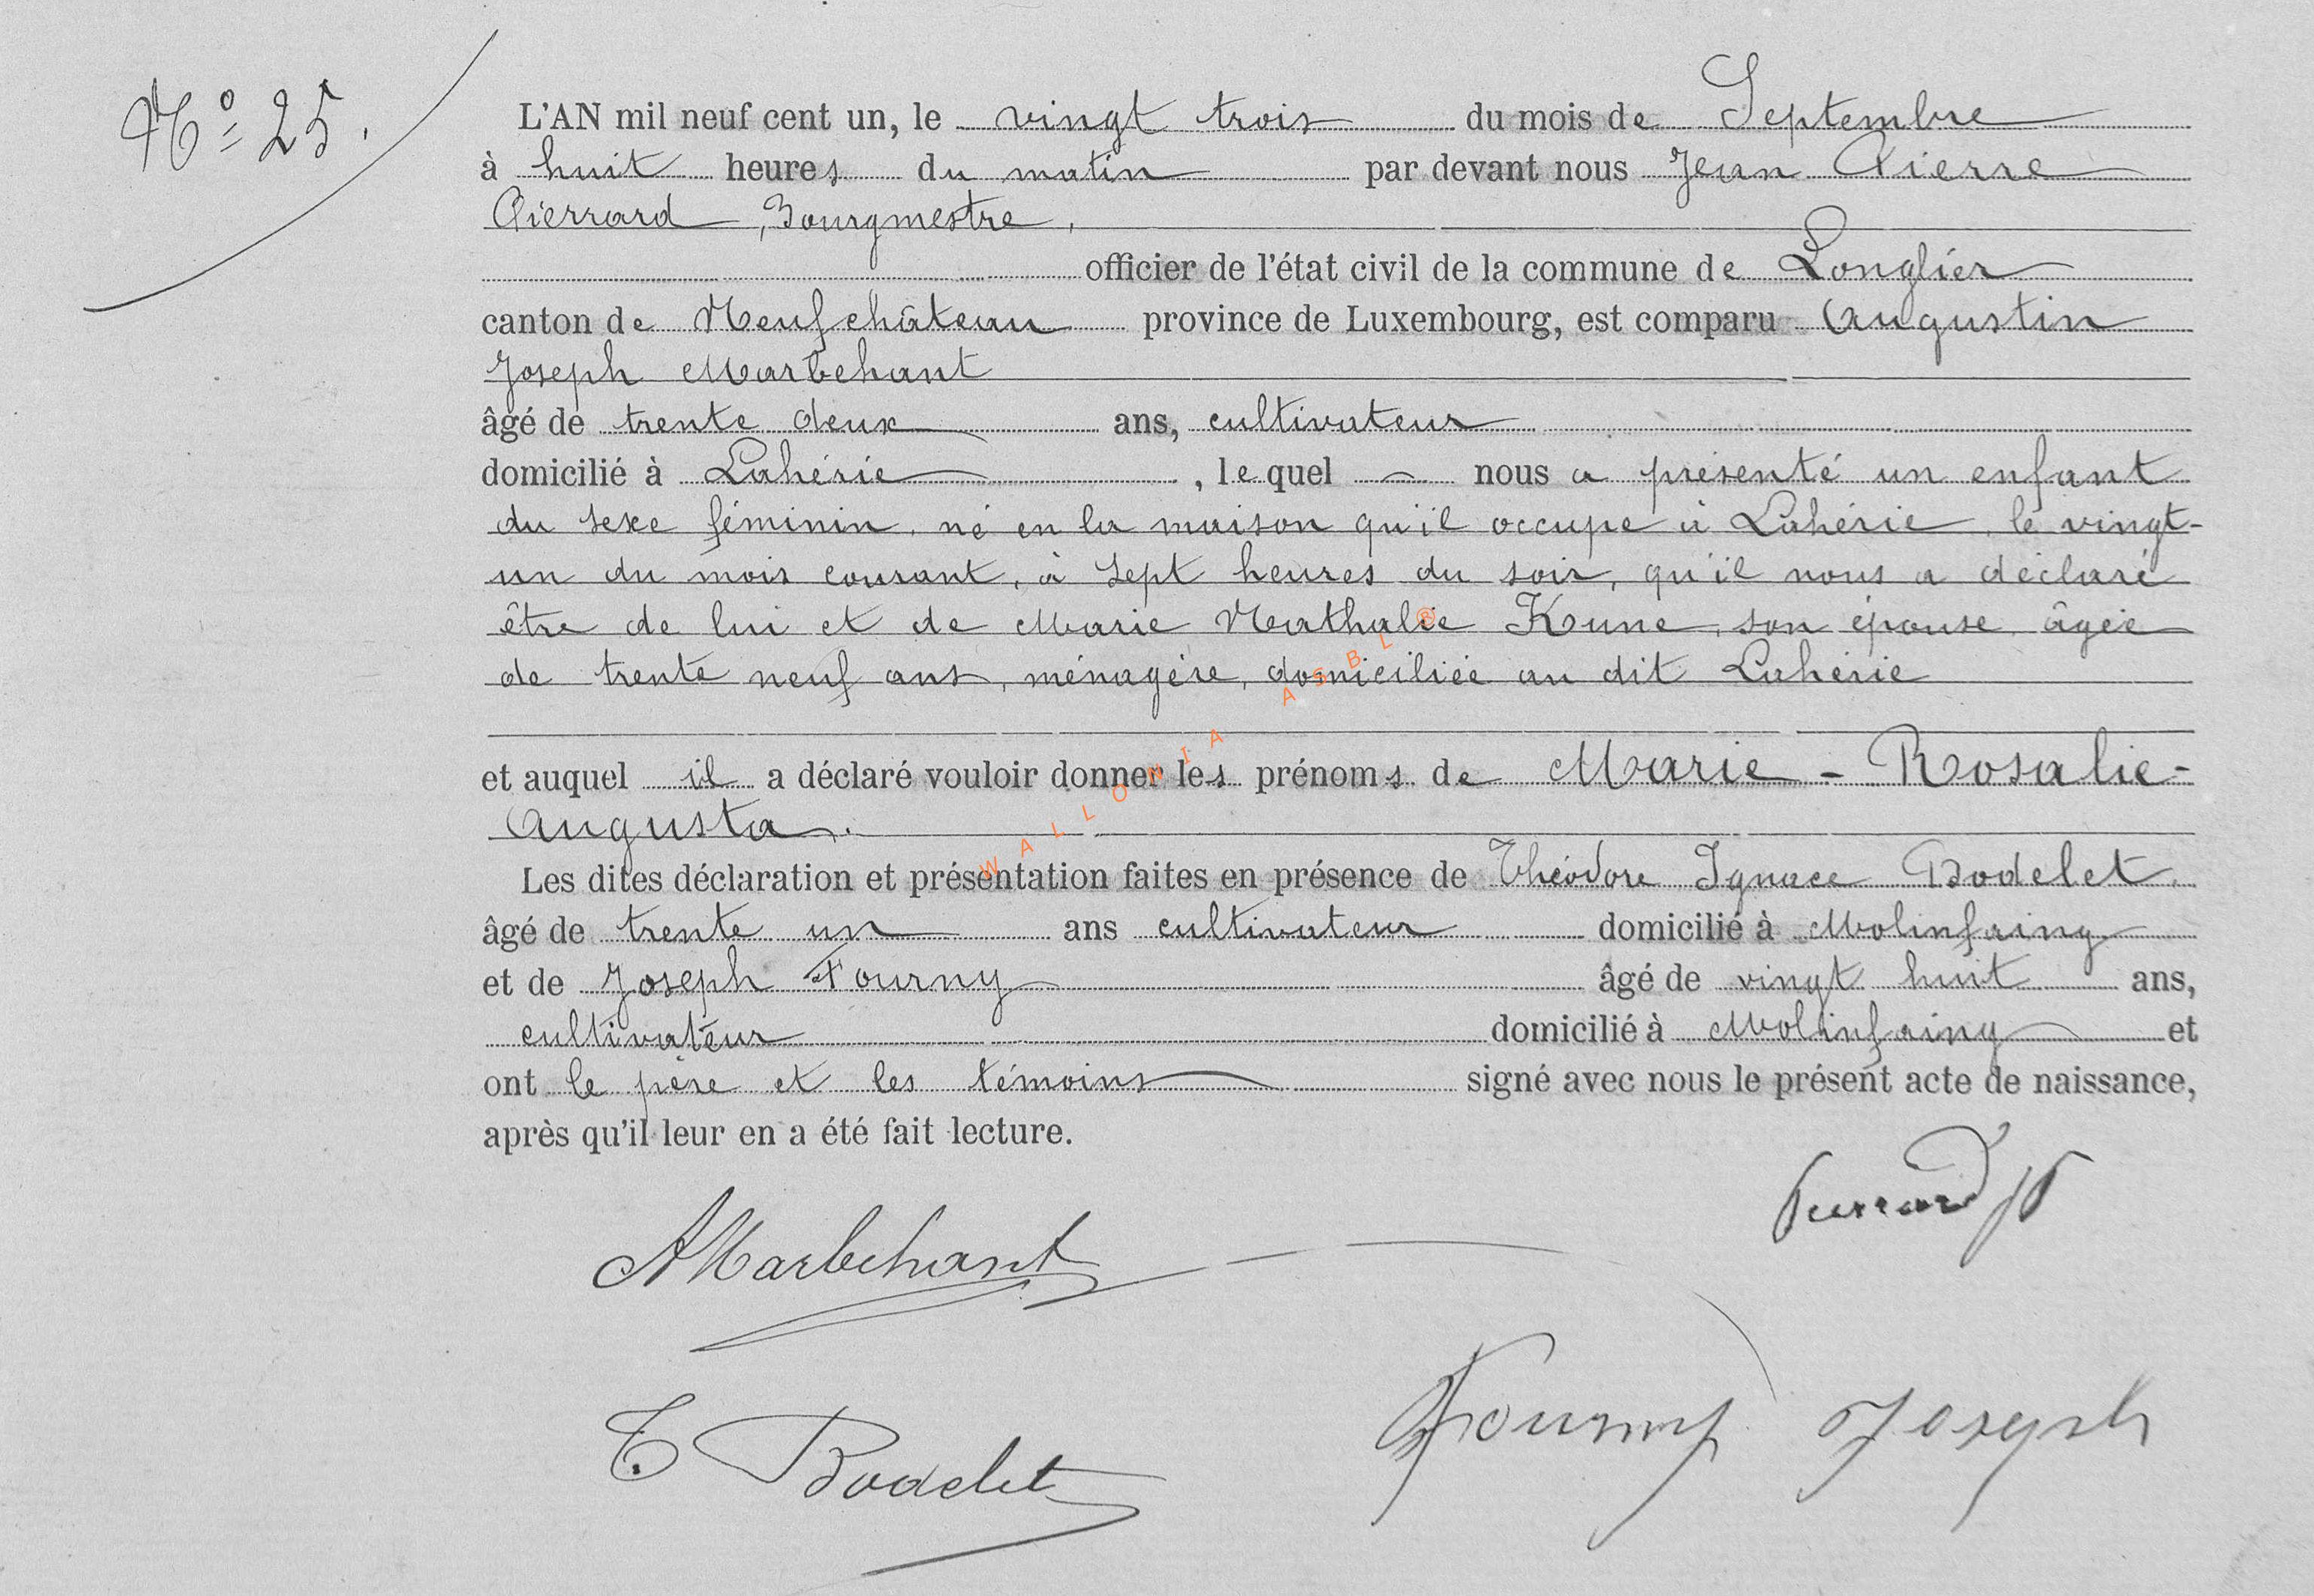 N° 25.
L'AN mil neuf cent un, le vingt trois du mois de Septembre
à huit heures du matin par devant nous Jean Pierre
Pierrard, Bourgmestre,
officier de l'état civil de la commune de Longlier
canton de Neufchâteau province de Luxembourg, est comparu Augustin
Joseph Marbehant
âgé de trente deux ans, cultivateur
domicilié à Lahérie, lequel nous a présenté un enfant
du sexe féminin, né en la maison qu'il occupe à Lahérie, le vingt-
un du mois courant, à sept heures du soir, qu'il nous a déclaré
être de lui et de Marie Nathalie Kune, son épouse, âgée
de trente neuf ans, ménagère, domiciliée au dit Lahérie
et auquel il a déclaré vouloir donner les prénoms de Marie - Rosalie -
Augusta.
Les dites déclaration et présentation faites en présence de Théodore Ignace Bodelet,
âgé de trente un ans cultivateur domicilié à Molinfaing
et de Joseph Fourny âgé de vingt huit ans,
cultivateur domicilié à Molinfaing et
ont le père et les témoins signé avec nous le présent acte de naissance,
après qu'il leur en a été fait lecture.
Pierrard JP
AMarbehant
T. Bodelet
Fourny Joseph
WALLONIA ASBL®